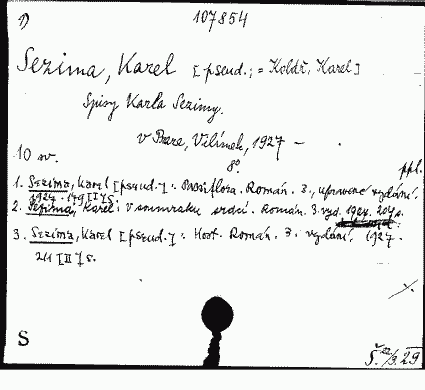 1)
107854
Sezima, Karel [pseud.; = Koldř, Karel]
Spisy Karla Sezimy.
v Praze, Vilímek, 1927 –
10 sv.
8°
ppl.
1. Sezima, Karel [pseud.]: Passiflora. Román. 3., upravené vydání.
1927. 179 [II] s.
2. Sezima, Karel: V soumraku srdcí. Román. 3. vyd. 1927. 207 s.
3. Sezima, Karel [pseud.]: Host. Román. 3. vydání. 1927.
211 [II] s.
S